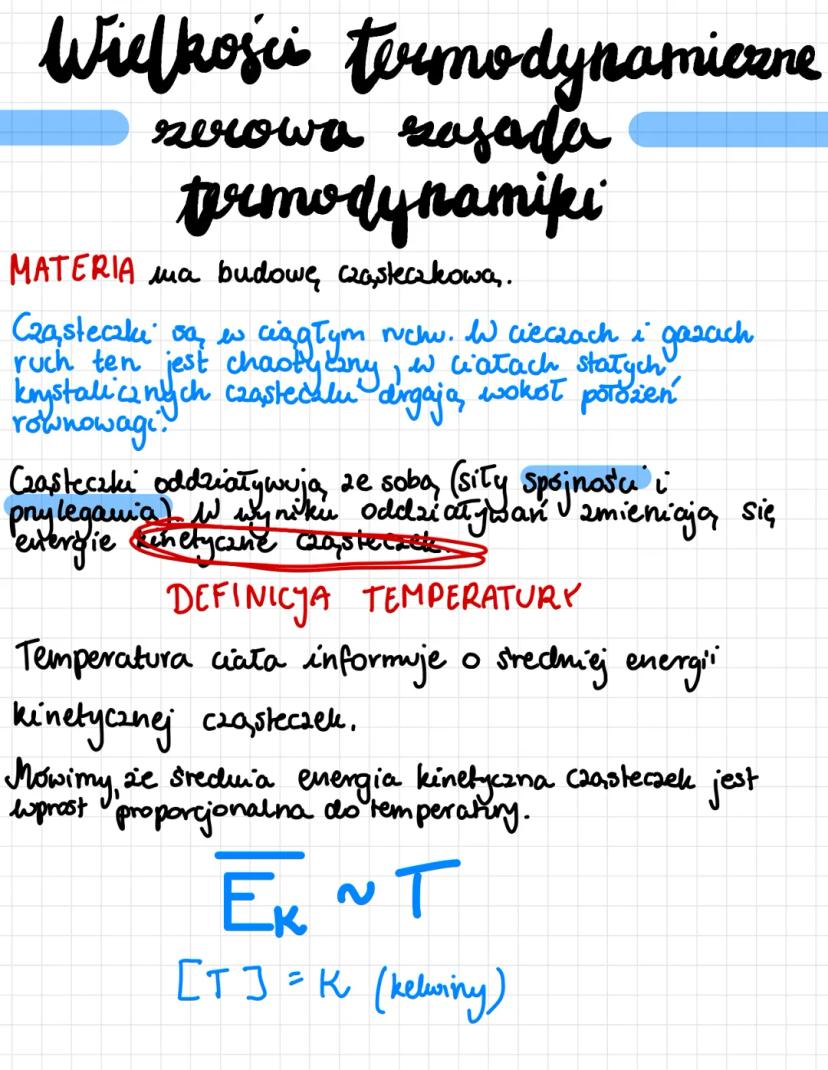 Wielkości termodynamiczne
zerowa zasada
termodynamiki
MATERIA ma budowę cząsteczkową.
Cząsteczki są w ciągłym ruchu. W cieczach i gazach
ruch ten jest chaotyczny, w ciałach stałych
krystalicznych cząsteczki drgają wokół położeń
równowagi.
Cząsteczki oddziaływują ze sobą (siły spójności i
przylegania). W wyniku oddziaływań zmieniają się
energie kinetyczne cząsteczek.
DEFINICJA TEMPERATURY
Temperatura ciała informuje o średniej energii
kinetycznej cząsteczek.
Mówimy, że średnia energia kinetyczna cząsteczek jest
wprost proporcjonalna do temperatury.
E̅ₖ ~ T
[T] = K (kelwiny)